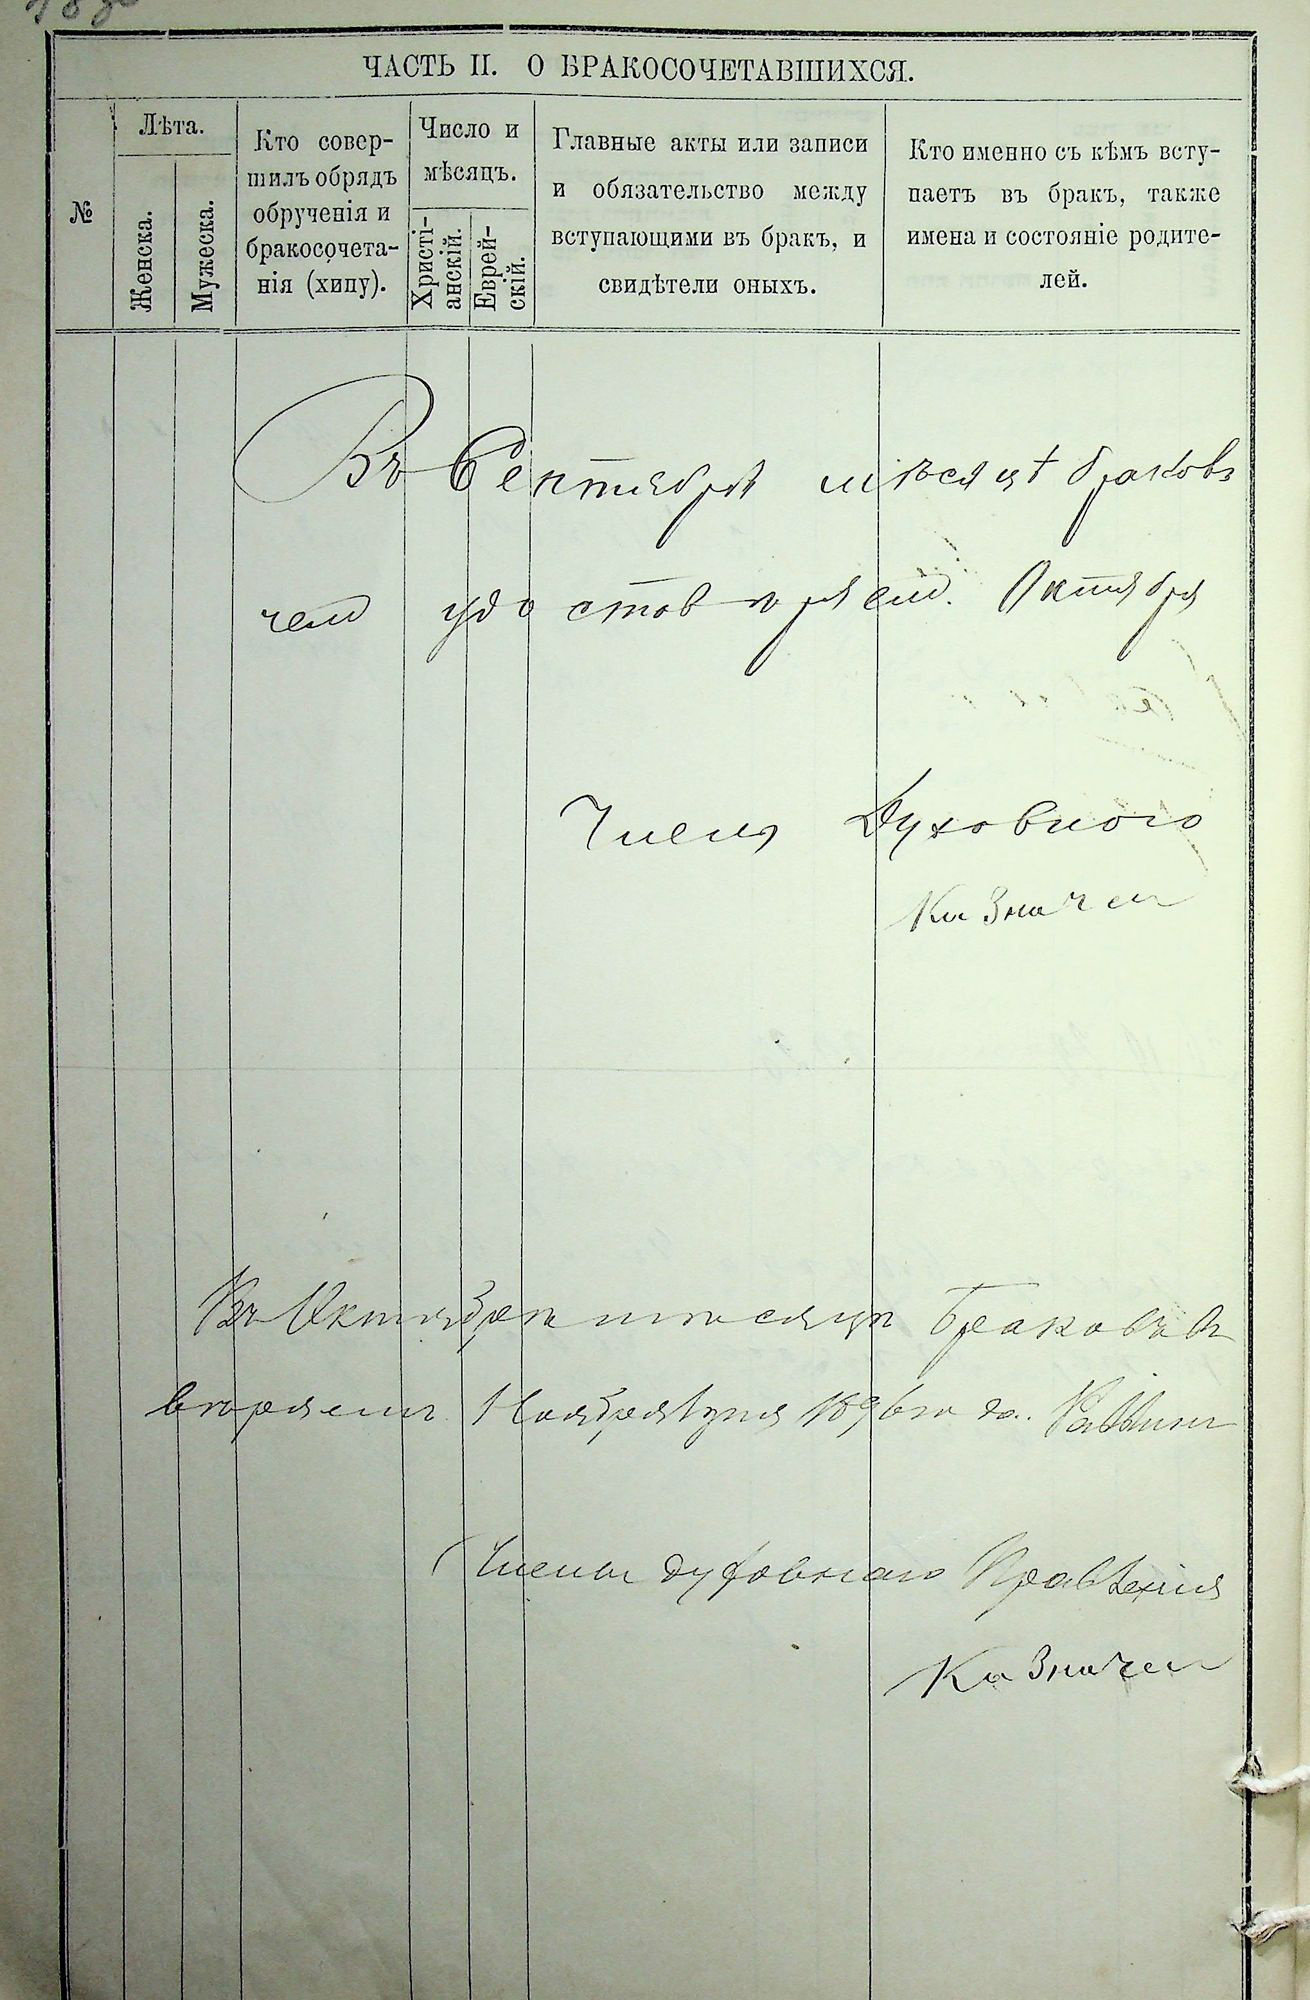 ЧАСТЬ II. О БРАКОСОЧЕТАВШИХСЯ.
№
Лѣта.
Женска.
Мужеска.
Кто совер-
шилъ обрядъ
обрученія и
бракосочета-
нія (хупу).
Число и
мѣсяцъ.
Христі-
анскій.
Еврей-
скій.
Главные акты или записи
и обязательство между
вступающими въ бракъ, и
свидѣтели оныхъ.
Кто именно съ кѣмъ всту-
паетъ въ бракъ, также
имена и состояніе родите-
лей.
Въ Сентябрѣ мѣсяцѣ браковъ
чем удостовѣряем. Октября
Члены Духовного
Казначеи
Въ Октябрѣ мѣсяцѣ браковъ
вѣряемъ Ноября 1896 го Раввинъ
Члены духовнаго Правленія
Казначеи